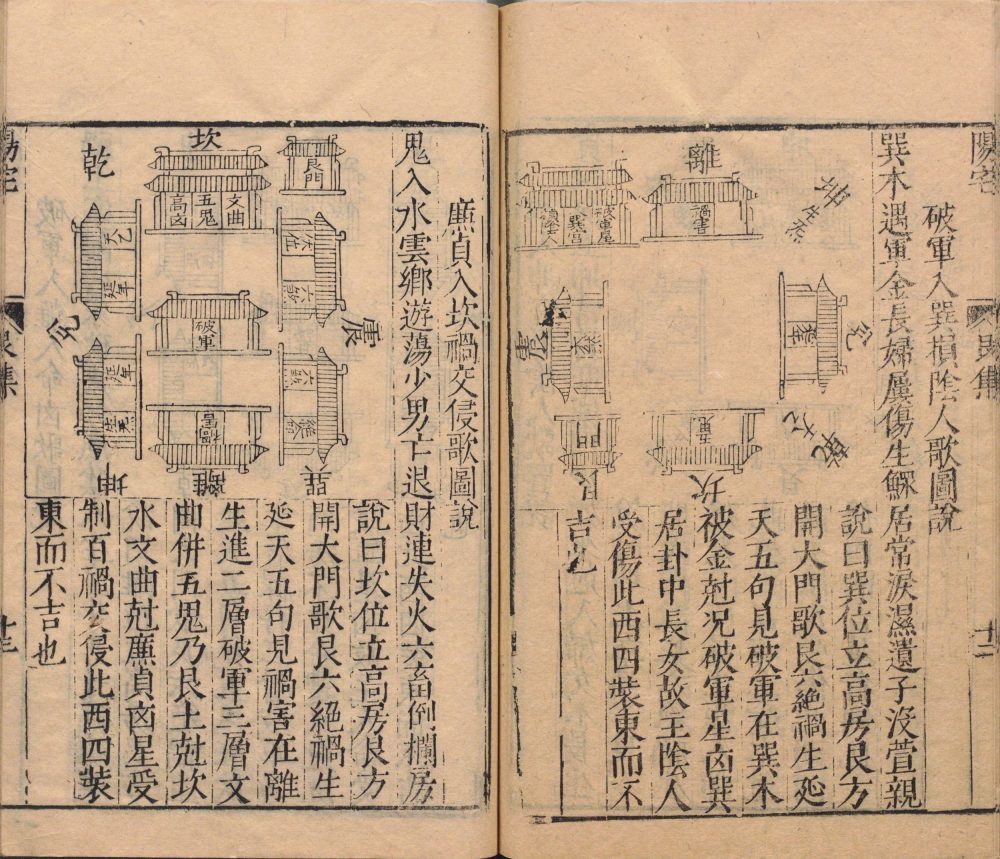 陽宅
十二
破軍入巽損陰人歌圖說
巽木遇軍金長婦屢傷生鰥居常淚濕遺子沒萱親
離
坤
生炁
禍害
巽宮
兌
震
乾
坎
艮
門
說曰巽位立高房艮方
開大門歌艮六絕禍生延
天五句見破軍在巽木
被金尅况破軍星凶巽
居卦中長女故主陰人
受傷此西四裝東而不
吉也
廉貞入坎禍交侵歌圖說
鬼入水雲鄉遊蕩少男亡退財連失火六畜倒欄房
坎
艮門
乾
文曲
五鬼
高凶
延年
六煞
震
兌
破軍
延年
離
坤
說曰坎位立高房艮方
開大門歌艮六絕禍生
延天五句見禍害在離
生進二層破軍三層文
曲併五鬼乃艮土尅坎
水文曲尅廉貞凶星受
制百禍交侵此西四裝
東而不吉也
十三